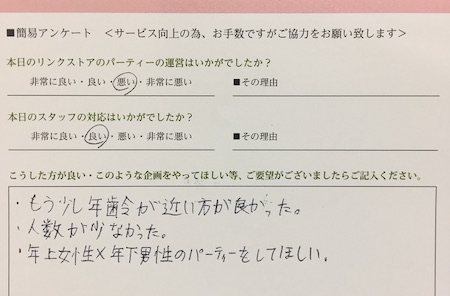 ■簡易アンケート　＜サービス向上の為、お手数ですがご協力をお願い致します＞
本日のリンクストアのパーティーの運営はいかがでしたか？
非常に良い・良い・悪い・非常に悪い　■その理由
本日のスタッフの対応はいかがでしたか？
非常に良い・良い・悪い・非常に悪い　■その理由
こうした方が良い・このような企画をやってほしい等、ご要望がございましたらご記入ください。
・もう少し年齢が近い方が良かった。
・人数が少なかった。
・年上女性×年下男性のパーティーをしてほしい。